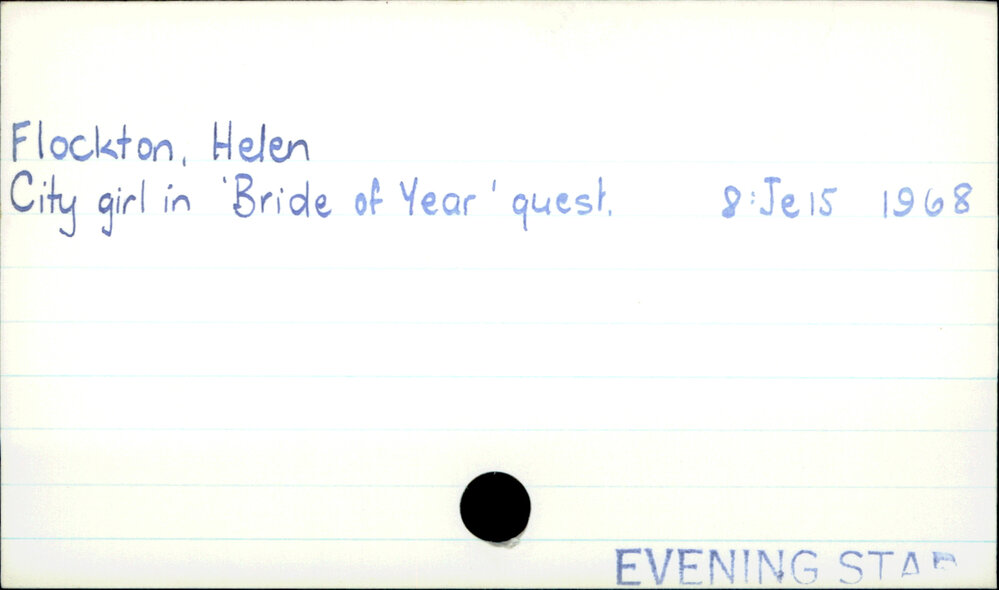 Flockton, Helen
City girl in 'Bride of Year' quest. 8:Je15 1968
EVENING STAR